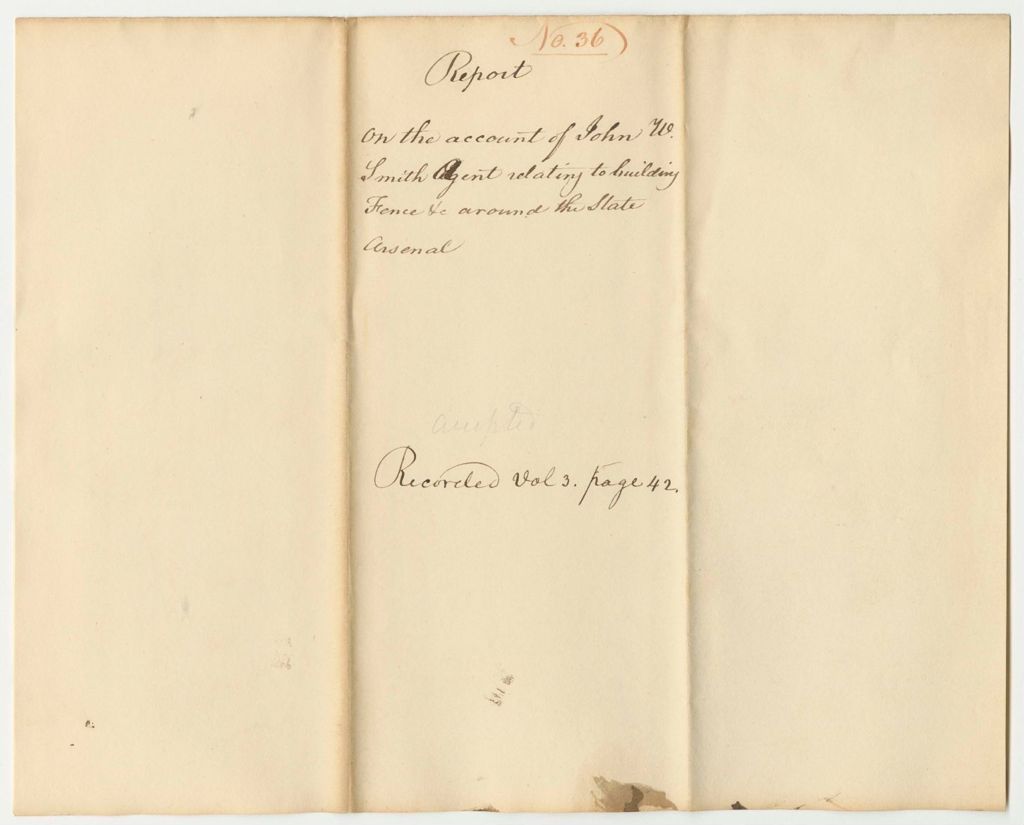 No. 36)
Report
On the account of John W.
Smith Agent relating to building
Fence &c around the State
Arsenal
accepted
Recorded Vol 3. page 42.